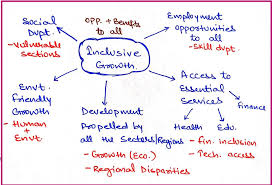 Social
Dvpt.
- Vulnerable
sections
Opp. + Benefits
to all
Employment
opportunities
to all
- Skill dvpt.
Inclusive
Growth.
Envt.
Friendly
Growth
Human
+
Envt.
Development
Propelled by
all the Sectors/Regions
- Growth (Eco.)
- Regional Disparities
Access to
Essential
Services
Finance
Health
Edu.
- fin. inclusion
- Tech. access